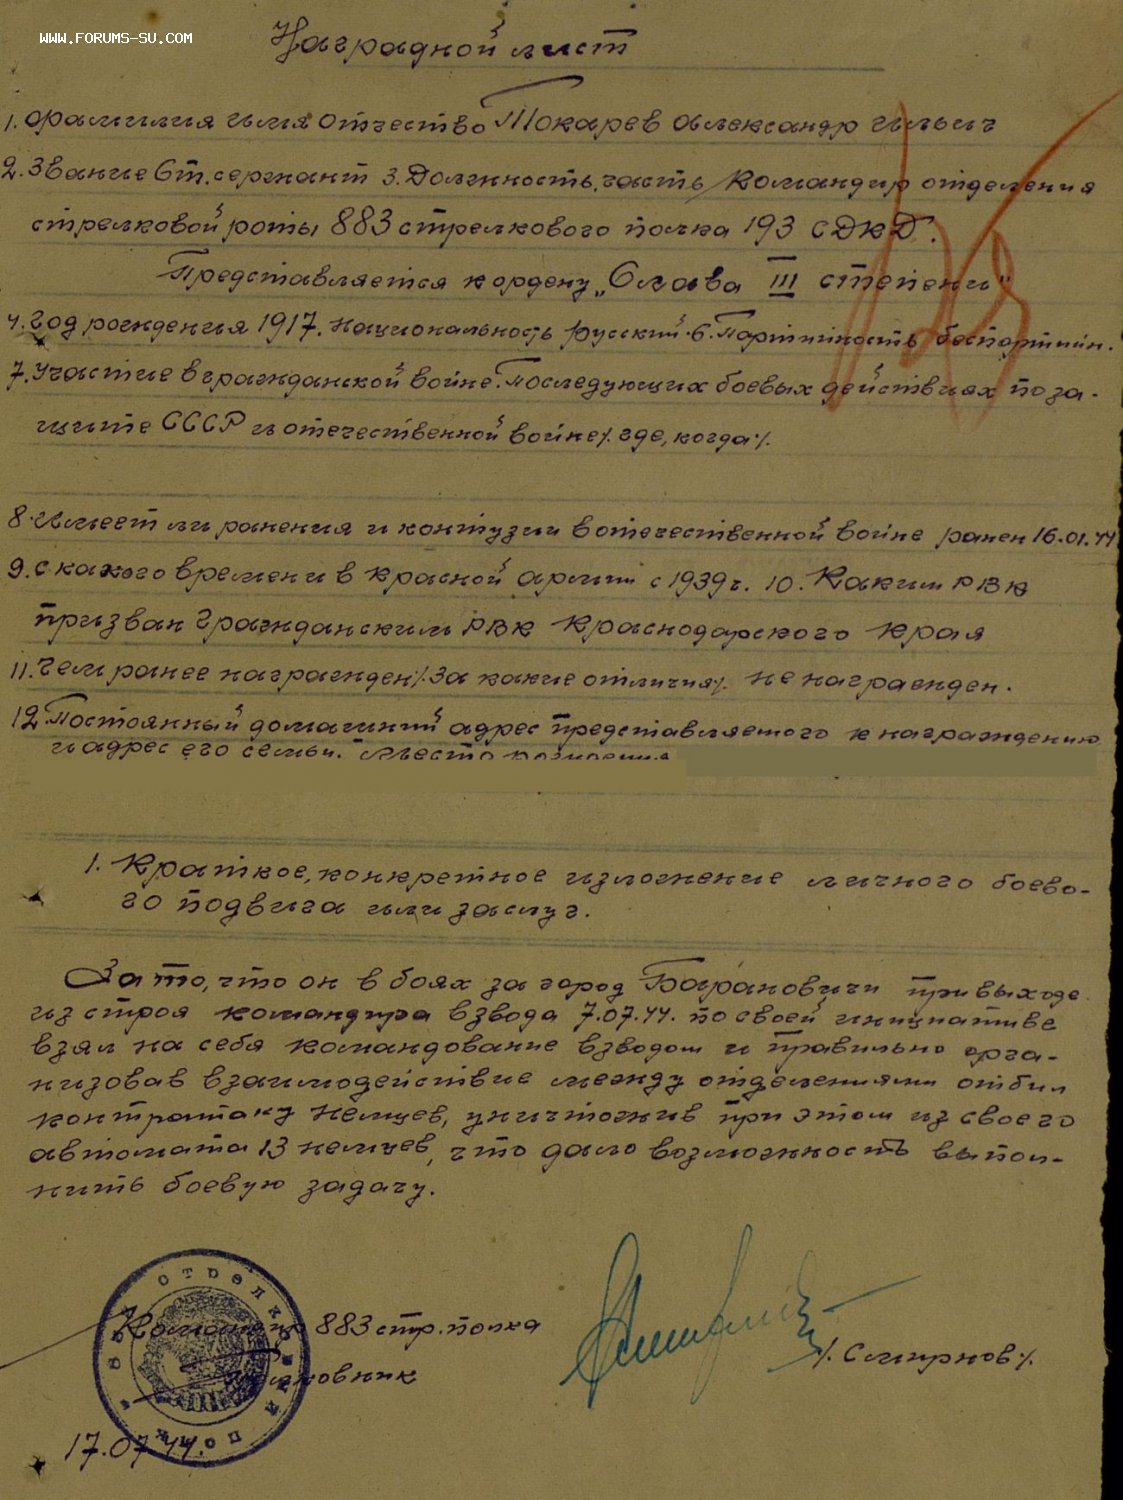 WWW.FORUMS-SU.COM
Наградной лист
1. Фамилия имя отчество Токарев Александр Ильич
2. Звание Ст. сержант 3. Должность, часть командир отделения
стрелковой роты 883 стрелкового полка 193 СДКД.
Представляется к ордену „Слава III степени"
4. год рождения 1917. национальность русский. 6. Партийность беспартийн.
7. Участие в гражданской войне. Последующих боевых действиях по за-
щите СССР и отечественной войне /. где, когда /.
8. Имеет ли ранения и контузии в отечественной войне ранен 16.01.44
9. с какого времени в красной армии с 1939 г. 10. Каким РВК
призван Гражданским РВК Краснодарского края
11. Чем ранее награжден /. за какие отличия /. не награжден.
12. Постоянный домашний адрес представляемого к награждению
и адрес его семьи. Место рождения
1. Краткое, конкретное изложение личного боево-
го подвига или заслуг.
За то, что он в боях за город Барановичи при выходе
из строя командира взвода 7.07.44. по своей инициативе
взял на себя командование взводом и правильно орга-
низовав взаимодействие между отделениями отбил
контратаку немцев, уничтожив при этом из своего
автомата 13 немцев, что дало возможность выпол-
нить боевую задачу.
Командир 883 стр. полка
/. Смирнов /.
17.07.44.